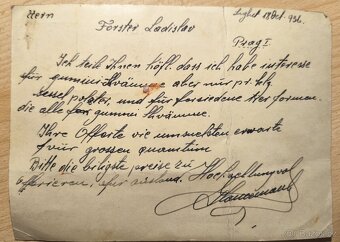 Herrn
Förster Ladislav
Prag I.
Ich teile Ihnen höfl. dass ich habe interesse
für gummi schwämme aber nur pr. klg
Sessel polster, und für forsiedene Herformen
die alle fon gummi schwämme.
Ihre Offerte vie umsucten erwarte
für grossen quantum
Bitte die biligste preise zu
offerieren, für ausland. Hochachtungsvol